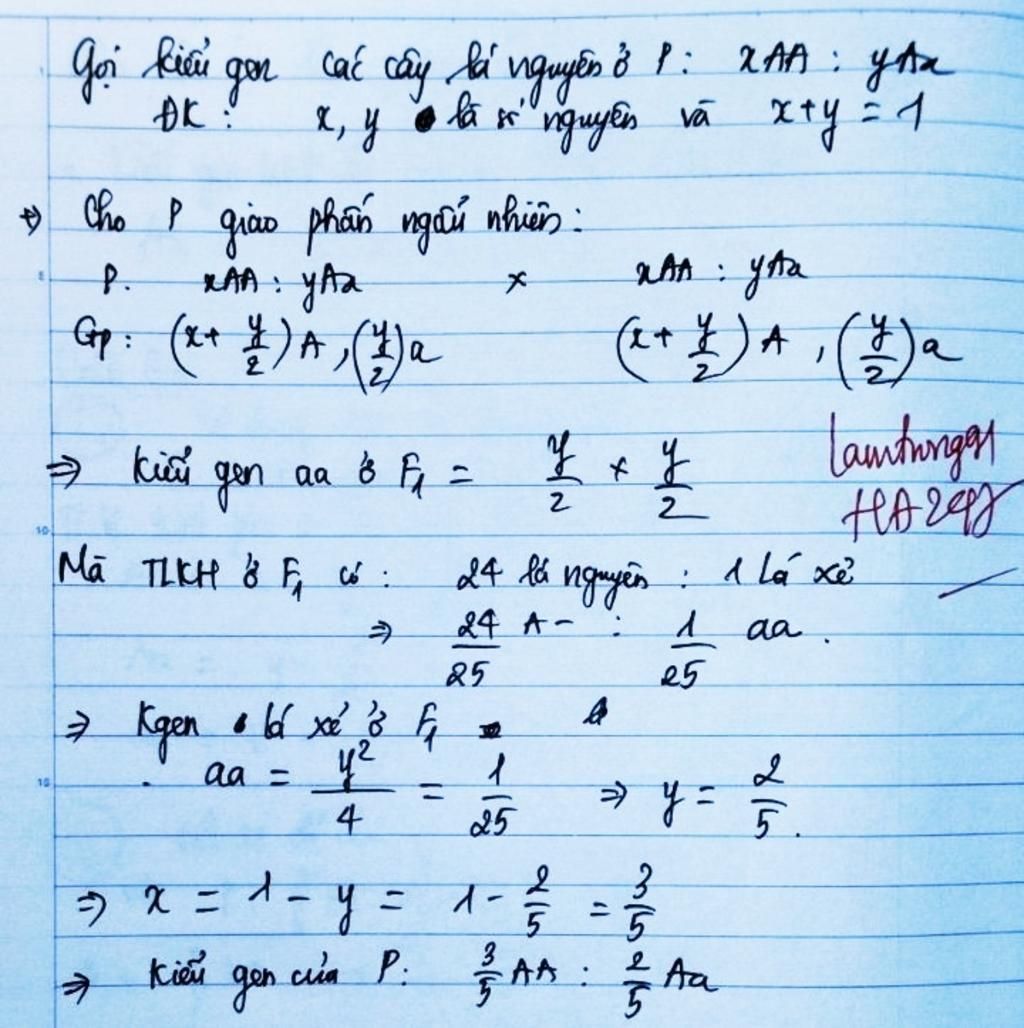 Gọi kiểu gen các cây lá nguyên ở P: xAA : yAa
ĐK: x, y là số nguyên và x+y = 1
=> Cho P giao phấn ngẫu nhiên:
P. xAA : yAa × xAA : yAa
Gp: (x + y/2) A, (y/2) a (x + y/2) A, (y/2) a
=> Kiểu gen aa ở F₁ = y/2 × y/2
lamtung91
HA249
Mà TLKH ở F₁ có: 24 lá nguyên : 1 lá xẻ
=> 24/25 A- : 1/25 aa.
=> Kgen lá xẻ ở F₁
aa = y²/4 = 1/25 => y = 2/5.
=> x = 1 - y = 1 - 2/5 = 3/5
=> Kiểu gen của P: 3/5 AA : 2/5 Aa